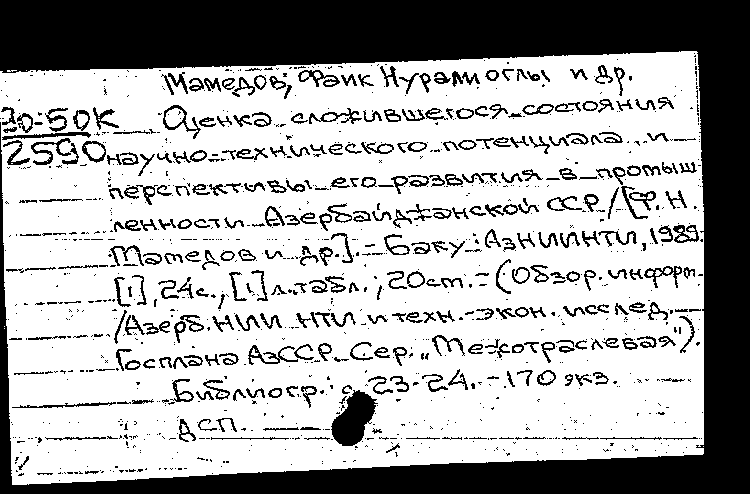 Мамедов, Фаик Нурали оглы и др.
30-50К Оценка сложившегося состояния
2590 научно-технического потенциала и
перспективы его развития в промыш
ленности Азербайджанской ССР / [Ф.Н.
Мамедов и др.]. - Баку: АзНИИНТИ, 1989.
[1], 24с., [1] л.табл.; 20см. - (Обзор. информ.
/Азерб. НИИ НТИ и техн.-экон. исслед.
Госплана АзССР. Сер. "Межотраслевая").
Библиогр.: с. 23-24. - 170 экз.
ДСП.